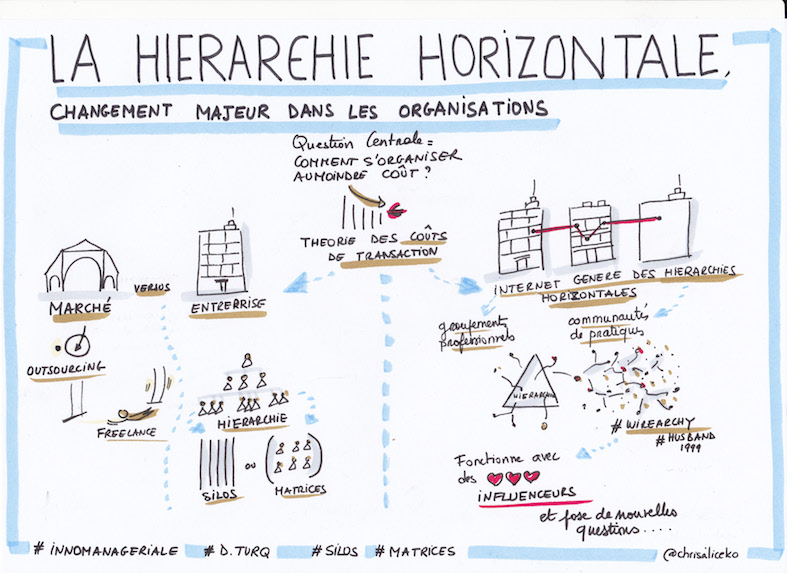 LA HIERARCHIE HORIZONTALE,
CHANGEMENT MAJEUR DANS LES ORGANISATIONS
Question Centrale =
COMMENT S'ORGANISER
AU MOINDRE COÛT ?
THEORIE DES COÛTS
DE TRANSACTION
MARCHÉ
VERSUS
ENTREPRISE
OUTSOURCING
FREELANCE
HIERARCHIE
SILOS
OU
MATRICES
INTERNET GENERE DES HIERARCHIES
HORIZONTALES
groupement
professionnels
communautés
de pratiques
HIERARCHIE
# WIREARCHY
# HUSBAND
1999
Fonctionne avec
des
INFLUENCEURS
et pose de nouvelles
questions....
# INNOMANAGERIALE # D. TURQ # SILOS # MATRICES
@chrisaliceko